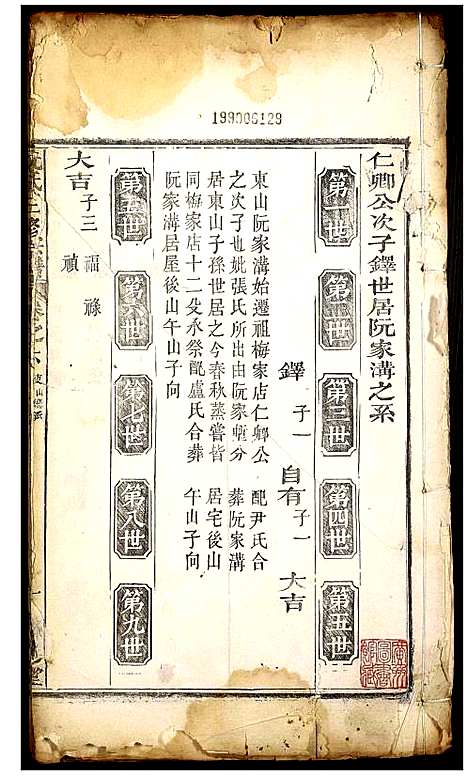 199006129
仁卿公次子鐸世居阮家溝之系
第一世
第二世
第三世
第四世
第五世
鐸 子一 自有 子一 大吉
東山阮家溝始遷祖梅家店仁卿公
之次子也妣張氏所出由阮家塹分
居東山子孫世居之今春秋蒸嘗皆
同梅家店十二殳承祭配盧氏合葬
阮家溝居屋後山午山子向
配尹氏合
葬阮家溝
居宅後山
午山子向
第五世
第六世
第七世
第八世
第九世
大吉 子三
福 祿
禎